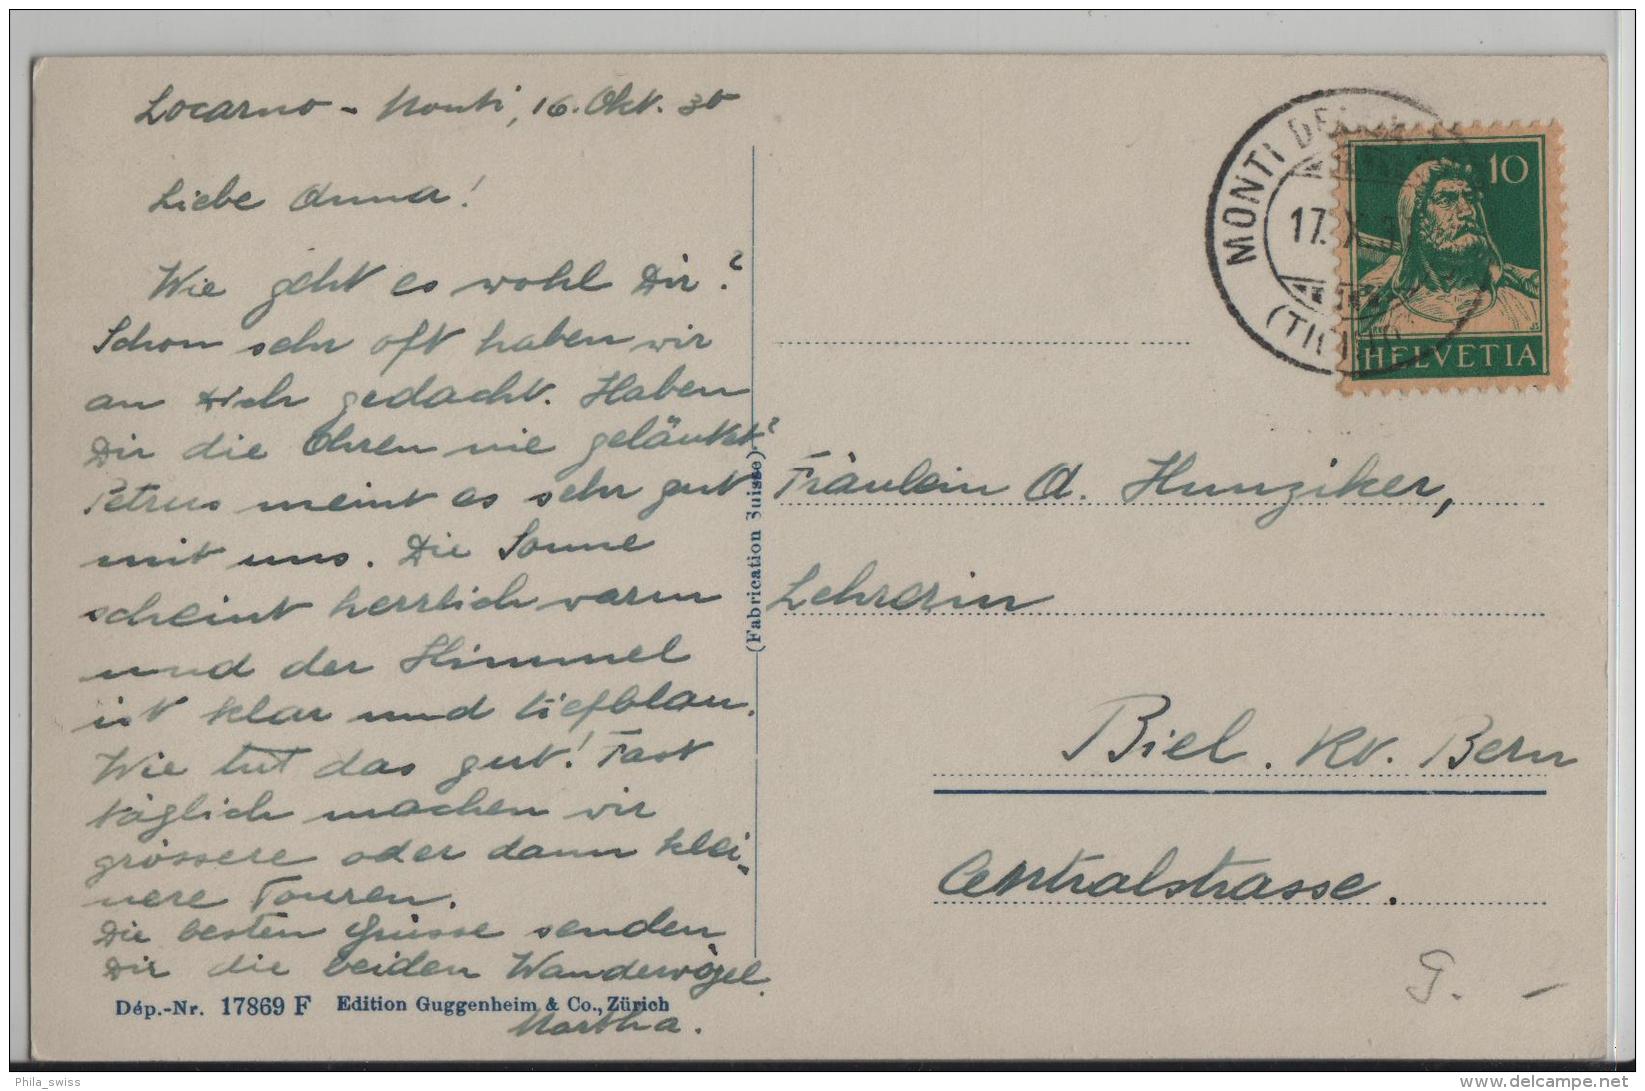 Locarno - Monti, 16. Okt. 30
Liebe Anna!
Wie geht es wohl Dir?
Schon sehr oft haben wir
an Dich gedacht. Haben
Dir die Ohren nie geläutet?
Petrus meint es sehr gut
mit uns. Die Sonne
scheint herrlich warm
und der Himmel
ist klar und tiefblau.
Wie tut das gut! Fast
täglich machen wir
grössere oder dann klei-
nere Touren.
Die besten Grüsse senden
Dir die beiden Wandervögel.
Martha.
Dép.-Nr. 17869 F Edition Guggenheim & Co., Zürich
(Fabrication Suisse)
MONTI DE
17. X. 3
(TICINO)
10
HELVETIA
Fräulein A. Hunziker,
Lehrerin
Biel. Kt. Bern
Centralstrasse.
G. -
Phila_swiss
www.delcampe.net